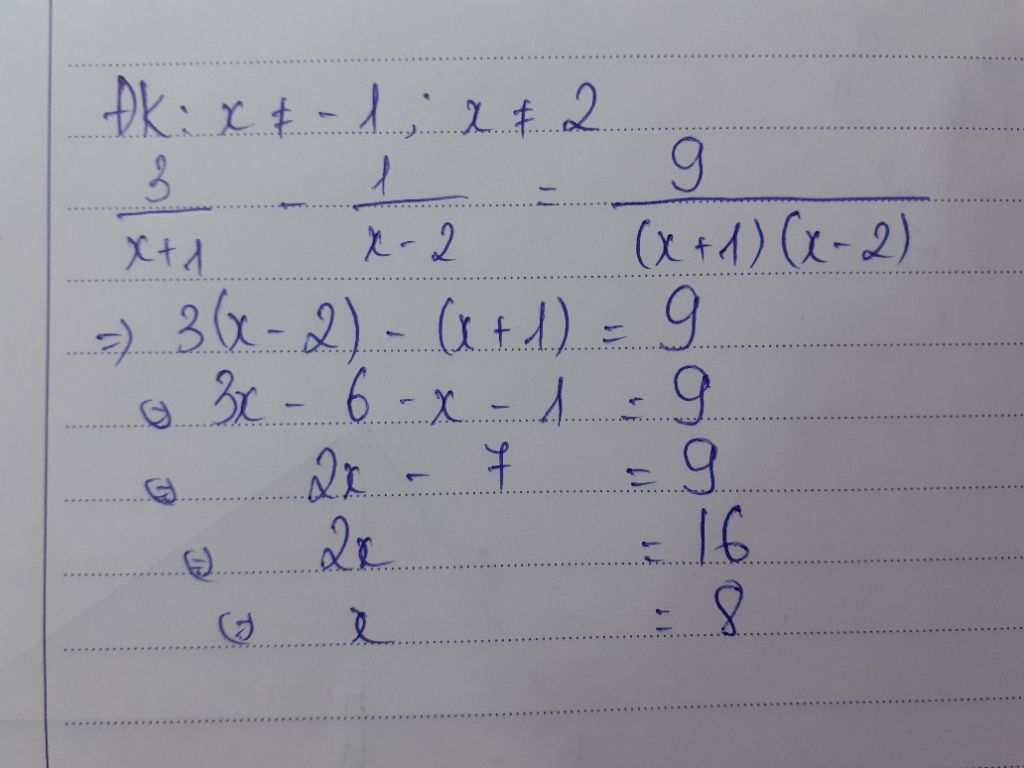 ĐK: x ≠ -1; x ≠ 2
3/(x+1) - 1/(x-2) = 9/((x+1)(x-2))
=> 3(x-2) - (x+1) = 9
⇔ 3x - 6 - x - 1 = 9
⇔ 2x - 7 = 9
⇔ 2x = 16
⇔ x = 8